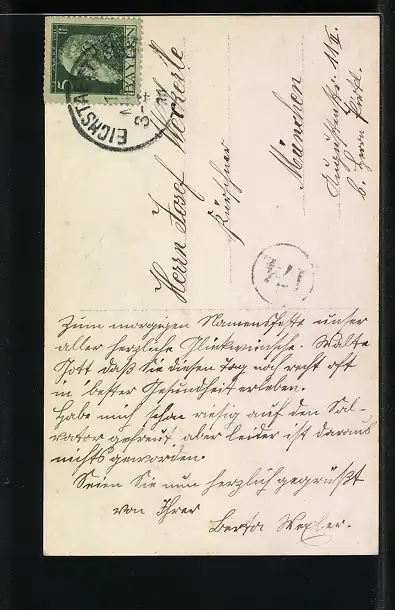 5
BAYERN
EICHSTÄTT
3-4
Herrn Josef Meckerle
Kürschner
München
b. Herrn
174
Zum morgigen Namensfeste unser
aller herzliche Glückwünsche. Wolle
Gott daß Sie diesen Tag noch recht oft
in bester Gesundheit erleben.
Habe mich schon riesig auf den Sal-
vator gefreut aber leider ist daraus
nichts geworden.
Seien Sie nun herzlich gegrüßt
von Ihrer
Berta Wexler.